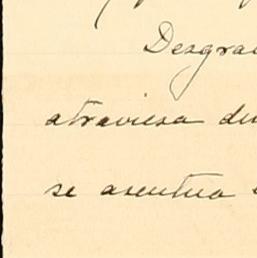 Desgra
atraviesa du
se asentua